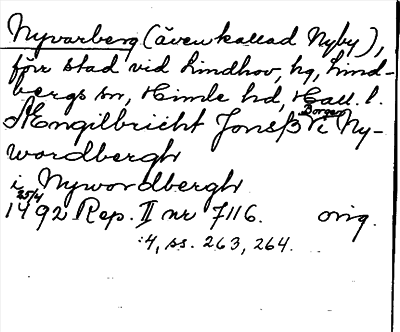 Nyvarberg (även kallad Nyby),
förr stad vid Lindhov, hg, Lind-
bergs sn, Himle hd, Hall. l.
Engilbricht Jonsß Borger i Ny-
wordbergh
i Nywordbergh
25/4 1492 Rep. II nr 7116. orig.
:4, ss. 263, 264.